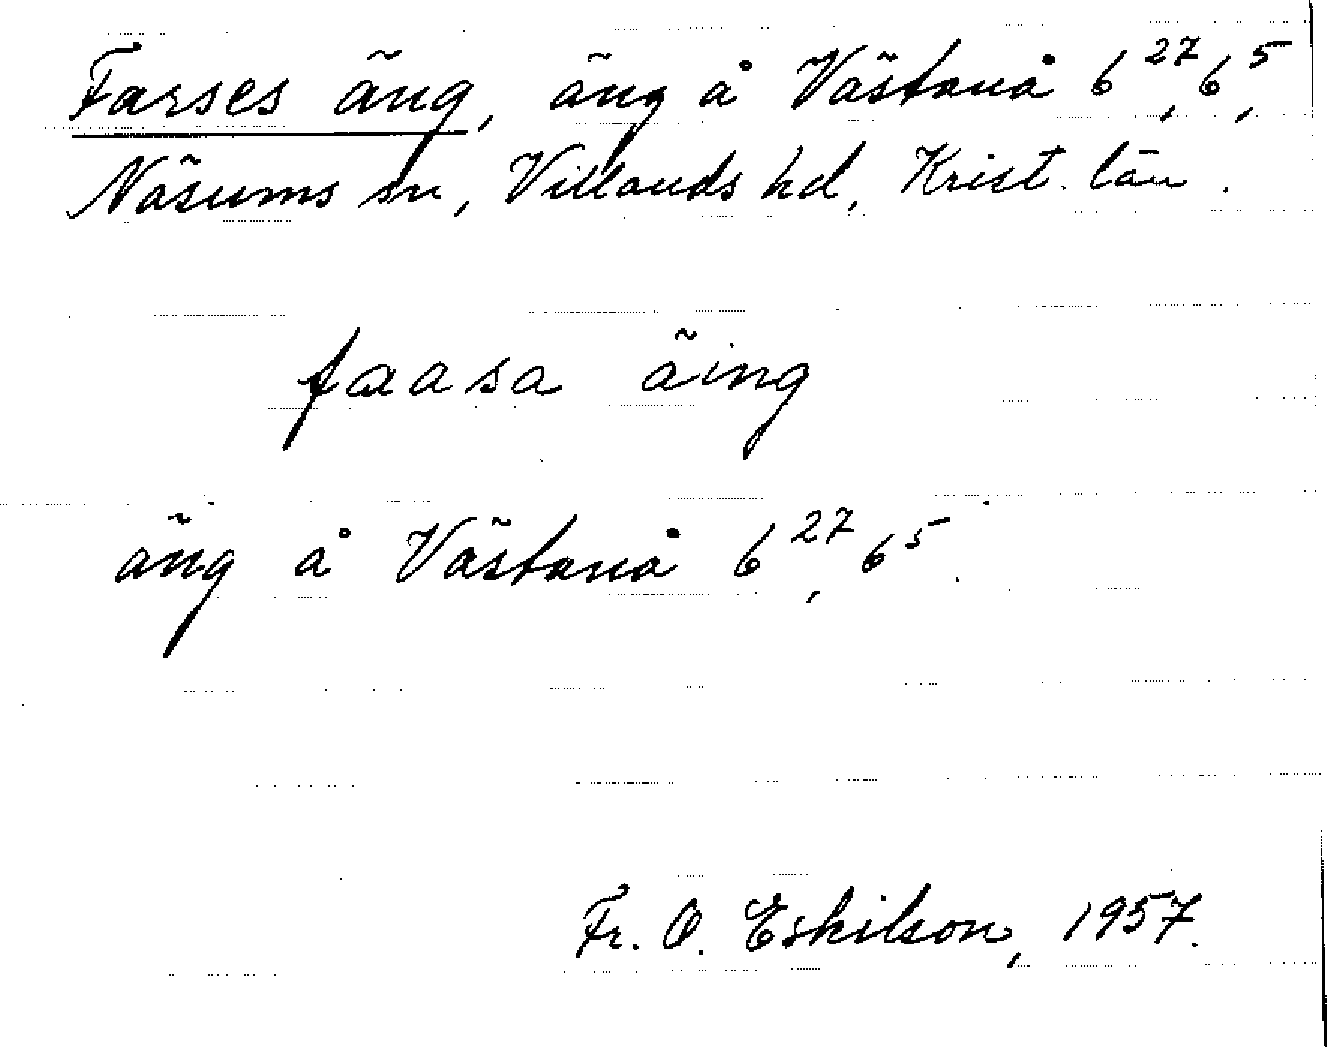 Farses äng, äng å Västanå 6²⁷, 6⁵,
Näsums sn, Villands hd, Krist. län.
faasa äing
äng å Västanå 6²⁷, 6⁵.
Fr. O. Eskilson, 1957.